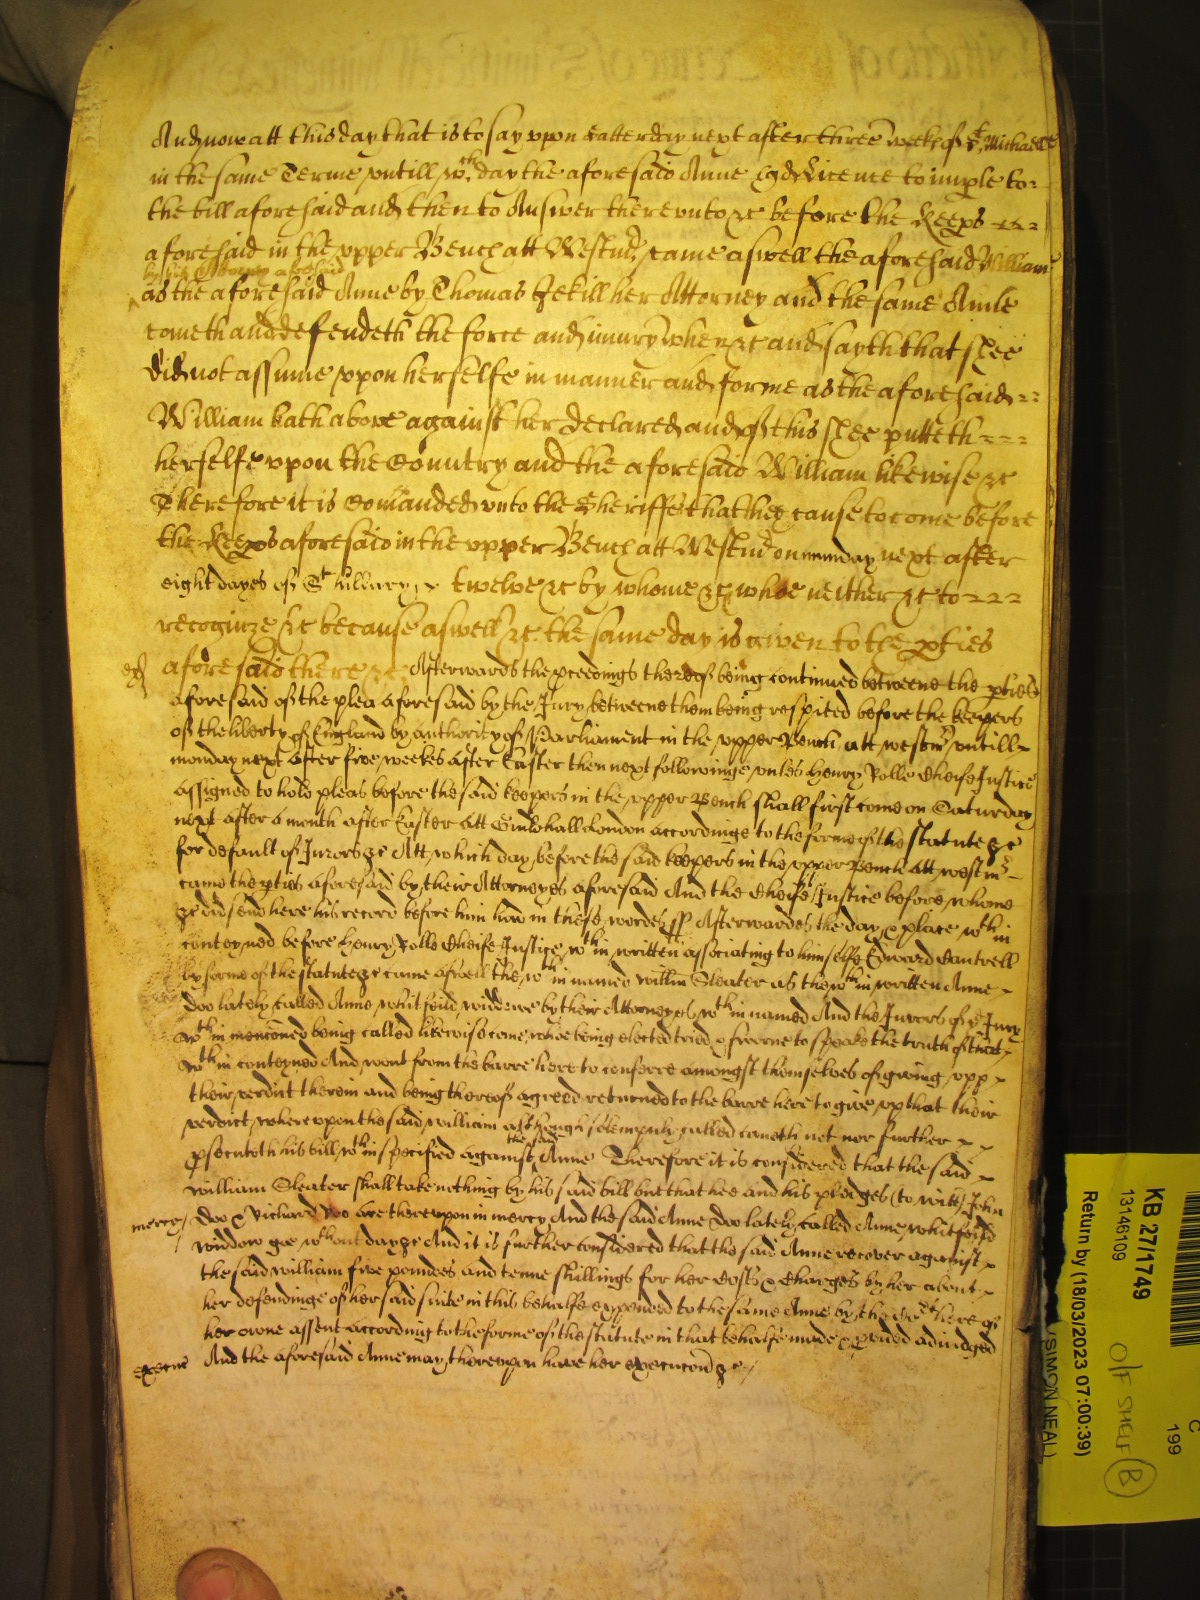 And now att this day that is to say vpon Satterday next after three weekes of St Michaell
in the same Terme vntill wch day the aforesaid Anne had Licence to imple to:
the bill aforesaid and then to Answer therevnto &c before the Keeps
aforesaid in the vpper Bench att Westmr came aswell the aforesaid William
by his Attorney aforesaid
as the aforesaid Anne by Thomas Jekill her Attorney and the same Anne
cometh and defendeth the force and iniury when &c and sayth that shee
did not assume vpon herselfe in manner and forme as the aforesaid
William hath above against her declared and of this shee putteth
herselfe vpon the Country and the aforesaid William likewise &c
Therefore it is Comanded vnto the Sheriffs that they cause to come before
the Keeps aforesaid in the vpper Bench att Westmr on munday next after
eight dayes of St Hillary twelve &c by whome &c whoe neither &c to
recognize &c because aswell &c the same day is given to the pties
aforesaid there &c Afterwards the pceedings thereof being continued betweene the pties
aforesaid of the plea aforesaid by the Jury betweene them being respited before the keepers
of the liberty of England by authority of Parliament in the vpper Bench att westmr vntill
monday next after five weekes after Easter then next followinge vnles Henry Rolle Cheife Justice
assigned to hold pleas before the said keepers in the vpper Bench shall first come on Saturday
next after a month after Easter att Guildhall London accordinge to the forme of the statute &c
for default of Jurors &c Att which day before the said keepers in the vpper Bench att westmr
came the pties aforesaid by their Attorneyes aforesaid And the Cheife Justice before whome
&c did send here his record before him had in these wordes ss Afterwardes the day & place wthin
conteyned before Henry Rolle Cheife Justice wthin written associating to himselfe Edward Cantrell
by forme of the statute &c came aswell the wthin named willm Sleater as the wthin written Anne
Doo lately called Anne whitfeild widdowe by their Attorneyes wthin named And the Jurors of ye Jury
wthin mencioned being called likewise come whoe being elected tried & sworne to speake the truth of that
wthin conteyned And went from the barre here to conferre amongst themselves of giving vpp
their verdict therein and being thereof agreed returned to the barre here to give vp that their
verdict wherevpon the said william although solempnly called cometh not nor further
psecuteth his bill wthin specified against the said Anne Therefore it is considered that the said
william Sleater shall take nothing by his said bill but that hee and his pledges (to witt) John
merce Doo & Richard Roo bee therevpon in mercy And the said Anne Doo lately called Anne whitfeild
widdow goe wthout day &c And it is further considered that the said Anne recover against
the said william five poundes and tenne shillings for her Costs & Charges by her about
her defendinge of her said suite in this behalfe expended to the same Anne by the Cort here of
her owne assent according to the forme of the statute in that behalfe made & pvided adiudged
And the aforesaid Anne may therevpon have her execucon &c
KB 27/1749
13146109
Return by (18/03/2023 07:00:39)
(SIMON NEAL)
O/F SHELF B
C
199